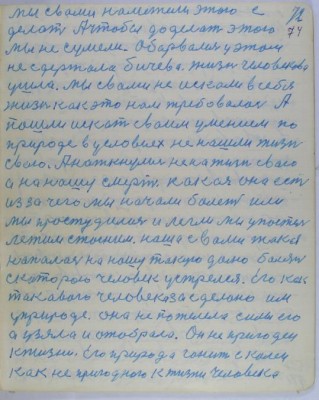 мы с вами наметили этого с
делат А чтобы доделат этого
мы не сумели. Оборвалися у этом
не сдержала бичева. жизн человека
ушла. мы с вами не искали в себя
жизн как это нам требовалос А
пошли искат своим умением по
природе в условиях не нашли жизн
свою. А наткнулис не на жизн свою
а на нашу смерт. какая она ест
из за чего мы начали болет или
мы простудилис и легли мы у постел
лежим стоним. наша с вами
напала на нашу такую долю болезн
с которою человек устрелся. Его как
такавого человека за сделано им
у природе. она не пожалела силы его
а узяла и отобрала. Он не пригодец
к жизни. Его природа гонит с колеи
как не пригодного к жизни человека